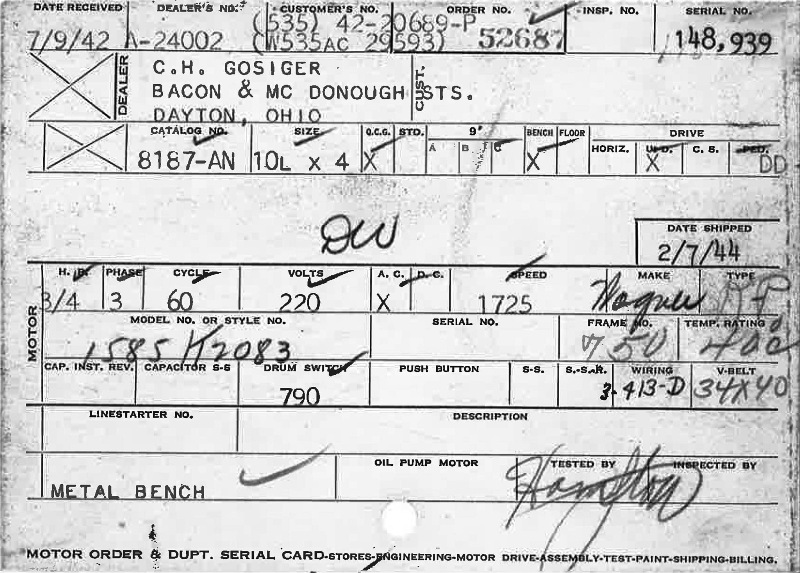 DATE RECEIVED DEALER'S NO. CUSTOMER'S NO. ORDER NO. INSP. NO. SERIAL NO.
7/9/42 A-24002 (535) 42-20689-P 52687 148,939
(W535AC 29593)
DEALER C.H. GOSIGER CUST.
BACON & MC DONOUGH STS.
DAYTON, OHIO
CATALOG NO. SIZE Q.C.G. STD. 9" BENCH FLOOR DRIVE
A B C HORIZ. U.D. C.S. PED.
8187-AN 10L x 4 X X X DD
DW
DATE SHIPPED
2/7/44
MOTOR
H.P. PHASE CYCLE VOLTS A.C. D.C. SPEED MAKE TYPE
3/4 3 60 220 X 1725 Wagner RP
MODEL NO. OR STYLE NO. SERIAL NO. FRAME NO. TEMP. RATING
1585 K2083 750 40c
CAP. INST. REV. CAPACITOR S-S DRUM SWITCH PUSH BUTTON S-S. S.-S.R. WIRING V-BELT
790 3-413-D 34X40
LINESTARTER NO. DESCRIPTION
OIL PUMP MOTOR TESTED BY INSPECTED BY
METAL BENCH Hamilton
MOTOR ORDER & DUPT. SERIAL CARD-STORES-ENGINEERING-MOTOR DRIVE-ASSEMBLY-TEST-PAINT-SHIPPING-BILLING.